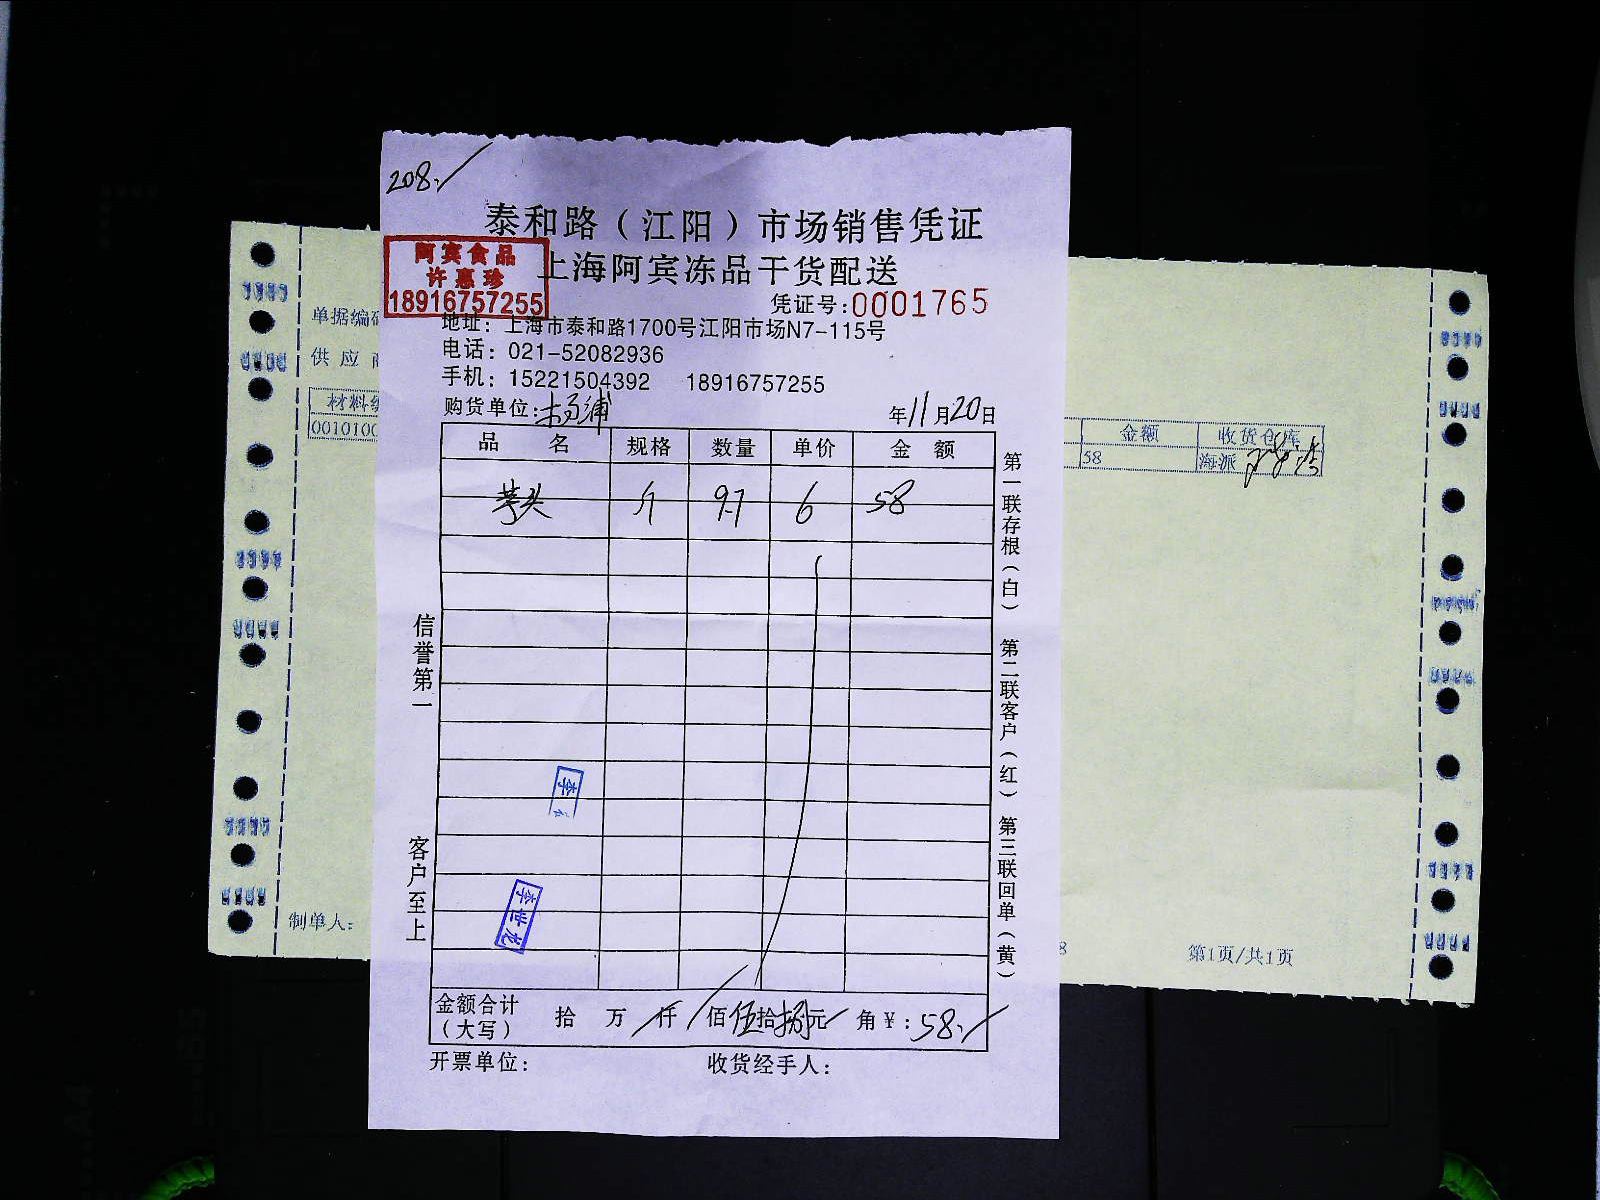 208.
泰和路（江阳）市场销售凭证
阿宾食品
许惠珍
18916757255
上海阿宾冻品干货配送
凭证号:0001765
地址：上海市泰和路1700号江阳市场N7-115号
电话：021-52082936
手机：15221504392 18916757255
购货单位:杨浦 年11月20日
品名 规格 数量 单价 金额
芋头 斤 9.7 6 58
信誉第一
客户至上
第一联存根（白） 第二联客户（红） 第三联回单（黄）
李
李世龙
金额合计（大写） 拾 万 仟 佰伍拾捌元 角￥:58.
开票单位: 收货经手人:
单据编
供应
材料
001010
制单人:
金额 收货仓库
58 海派
8
第1页/共1页